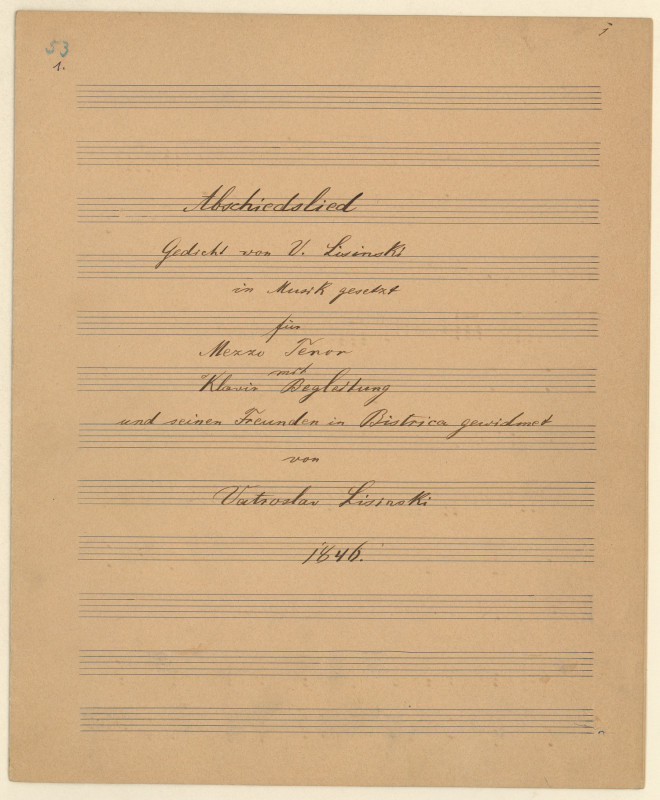 53
1.
1
Abschiedslied
Gedicht von V. Lisinski
in Musik gesetzt
für
Mezzo Tenor
mit
Klavir Begleitung
und seinen Freunden in Bistrica gewidmet
von
Vatroslav Lisinski
1846.